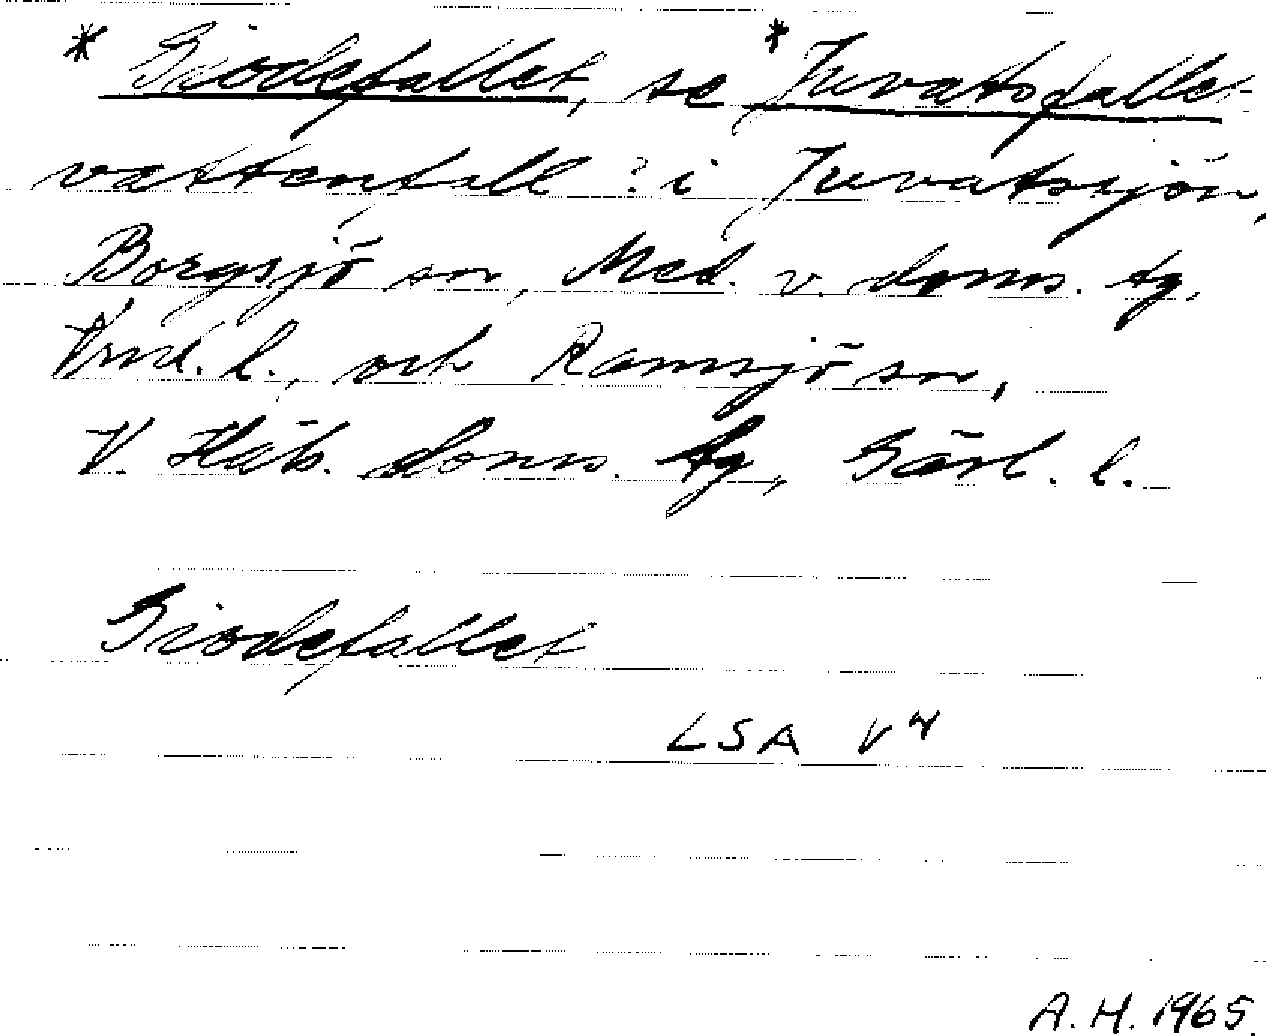 * Giodefallet, se * Juvatsfallet
vattenfall? i Juvatssjön,
Borgsjö sn, Med. v. doms. tg,
Vnrl. l., och Ramsjö sn,
V. Häls. doms. tg, Gävl. l.
Giodefallet
LSA V 4
A. H. 1965.